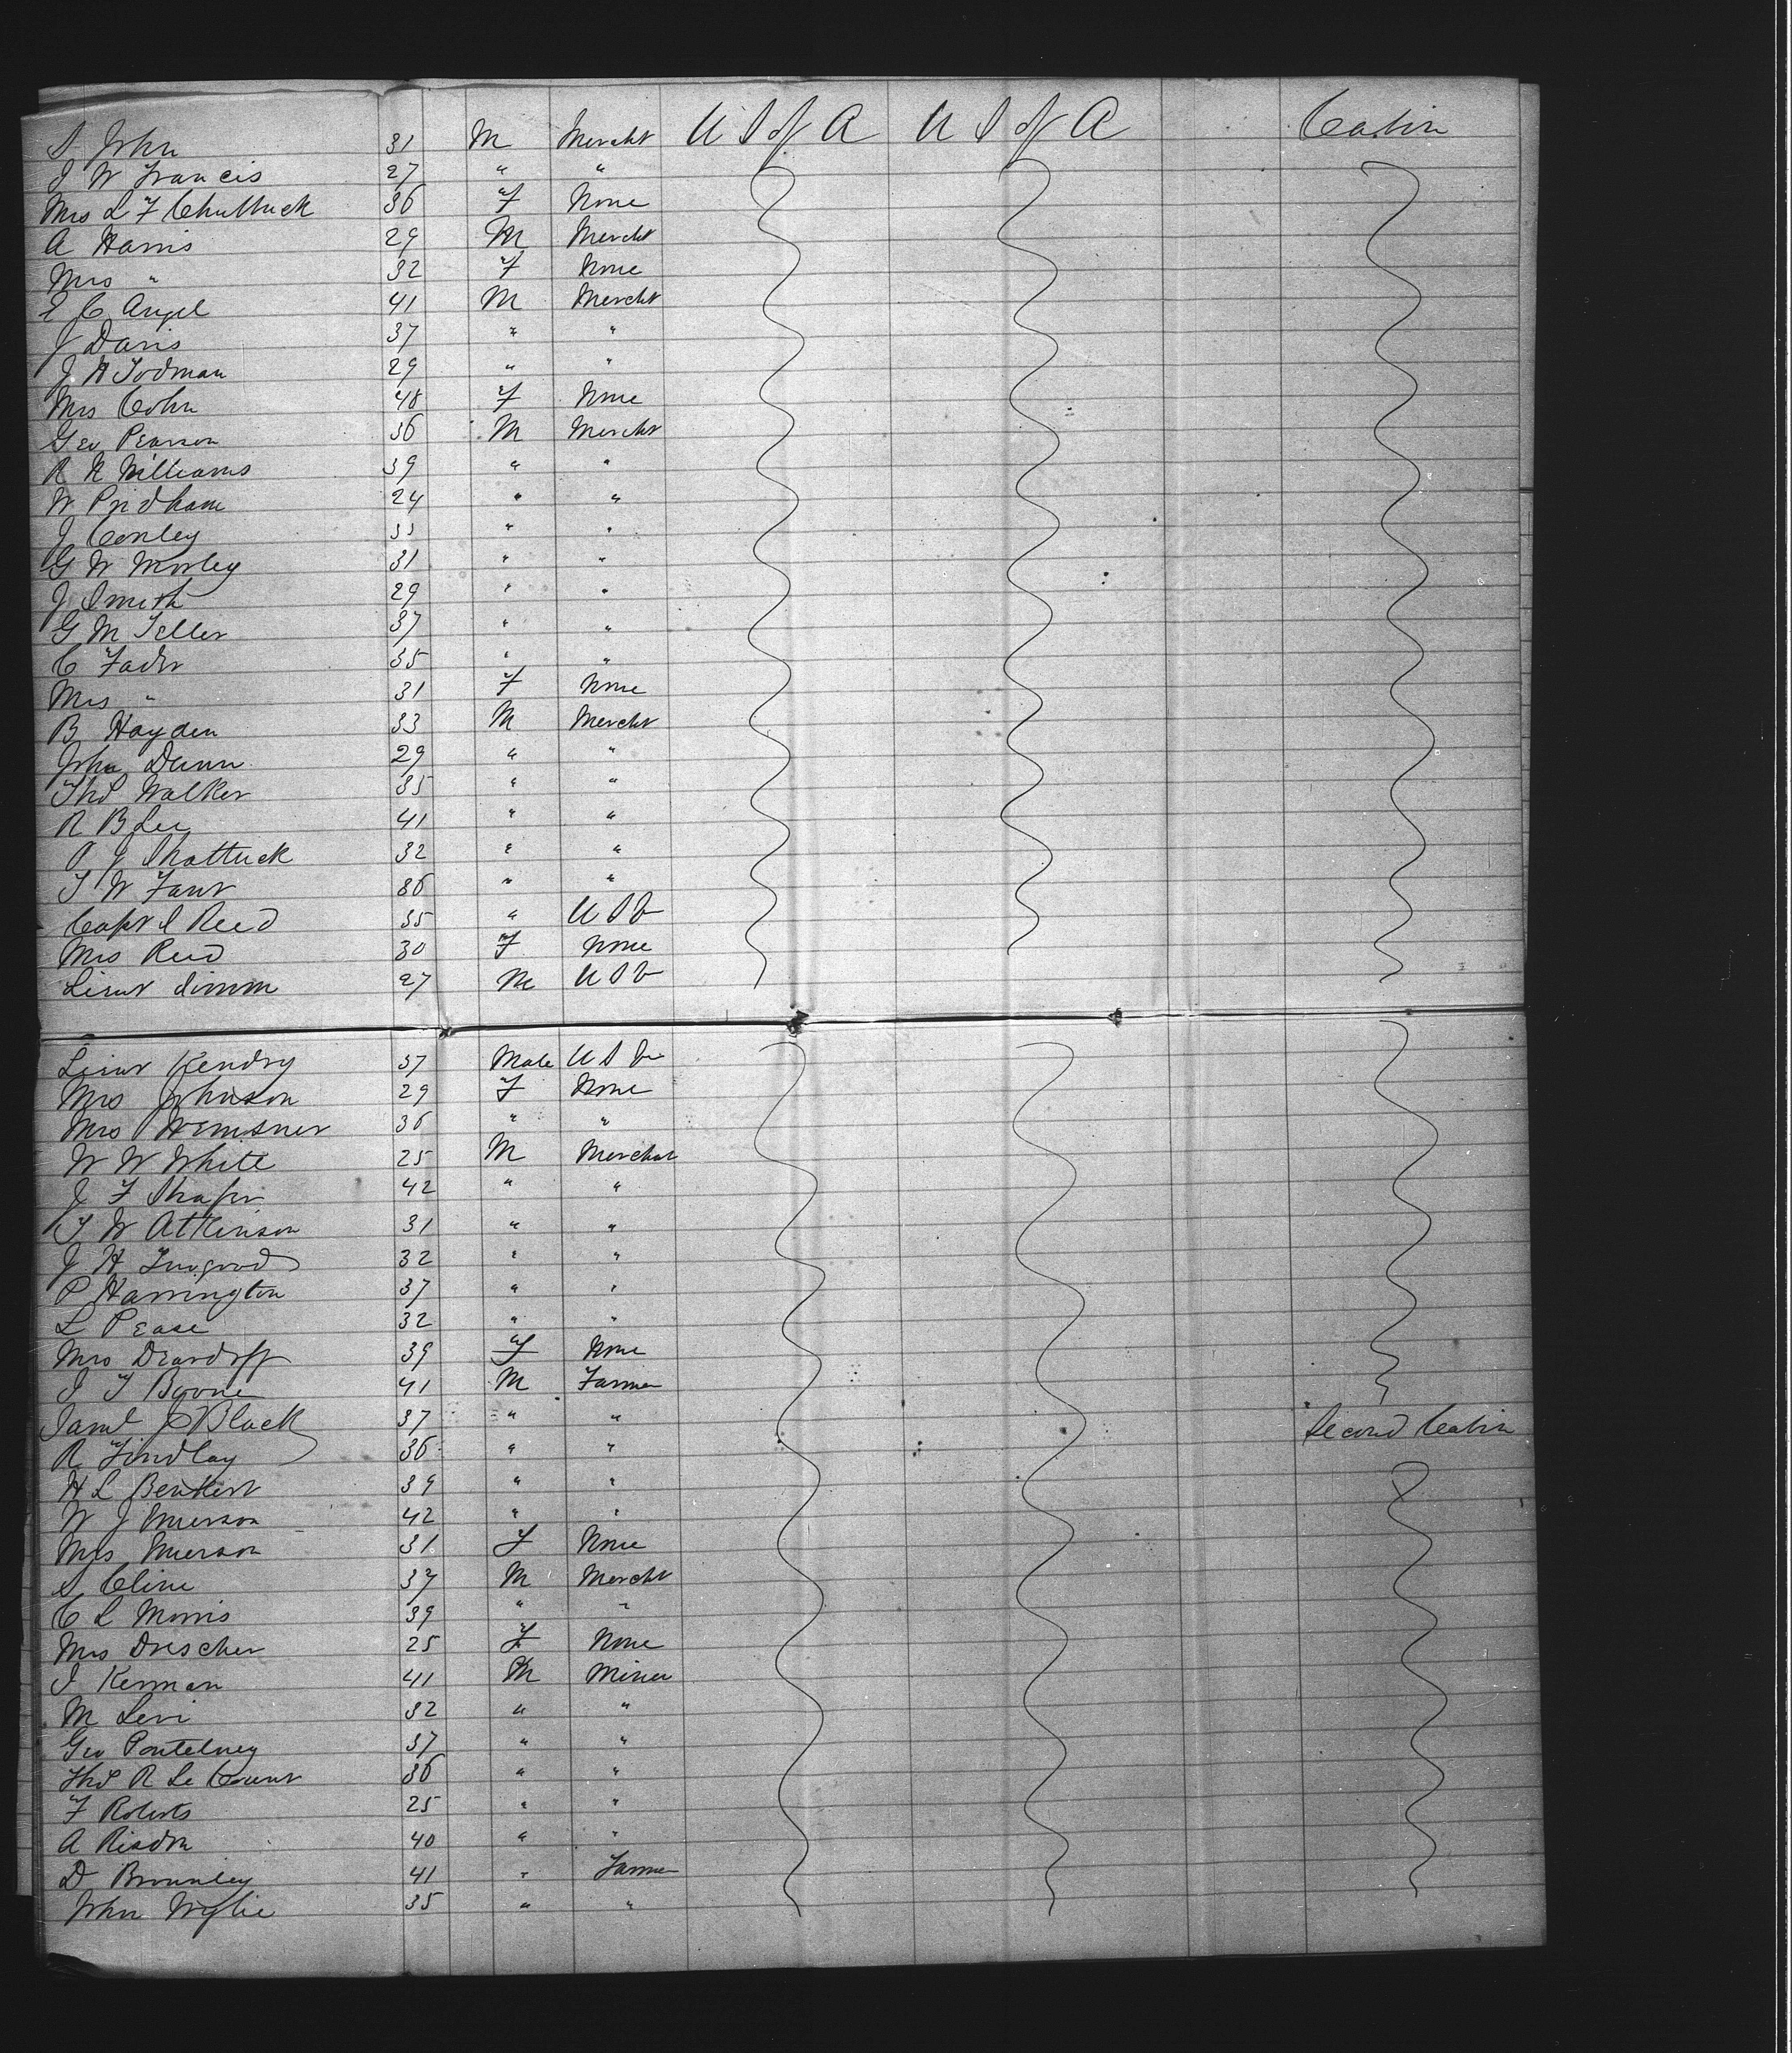 S John 31 M Mercht U S of A U S of A Cabin
J W Francis 27 " "
Mrs L F Chubbuck 36 F None
A Harris 29 M Mercht
Mrs " 32 F None
E C Angel 41 M Mercht
J Davis 37 " "
J H Todman 29 " "
Mrs Cohn 48 F None
Geo Pearson 36 M Mercht
R N Williams 39 " "
W Pridham 24 " "
J Conley 33 " "
G W Morley 31 " "
J Smith 29 " "
G M Teller 37 " "
C Fader 35 " "
Mrs " 31 F None
B Hayden 33 M Mercht
John Dunn 29 " "
Thos Walker 35 " "
R B Lee 41 " "
O J Shattuck 32 " "
T W Faur 36 " "
Capt Reed 35 " U S
Mrs Reed 30 F None
Lieut Simm 27 M U S
Lieut Kendry 37 Male U S
Mrs Johnson 29 F None
Mrs 36 " "
W W White 25 M Merchat
J F Shafer 42 " "
T W Atkinson 31 " "
J H 32 " "
P Harrington 37 " "
L Pease 32 " "
Mrs Deardoff 39 F None
J T Boone 41 M Farmer
Saml J Black 37 " " Second Cabin
R Findlay 36 " "
H L Benkert 39 " "
W J Emerson 42 " "
Mrs Emerson 31 F None
S Cline 37 M Mercht
C L Morris 39 " "
Mrs Drescher 25 F None
J Kerman 41 M Miner
M Levi 32 " "
Geo Pontelney 37 " "
Thos R Le Count 36 " "
F Roberts 25 " "
A Risdon 40 " "
D Brownley 41 " Farmer
John Wylie 35 " "